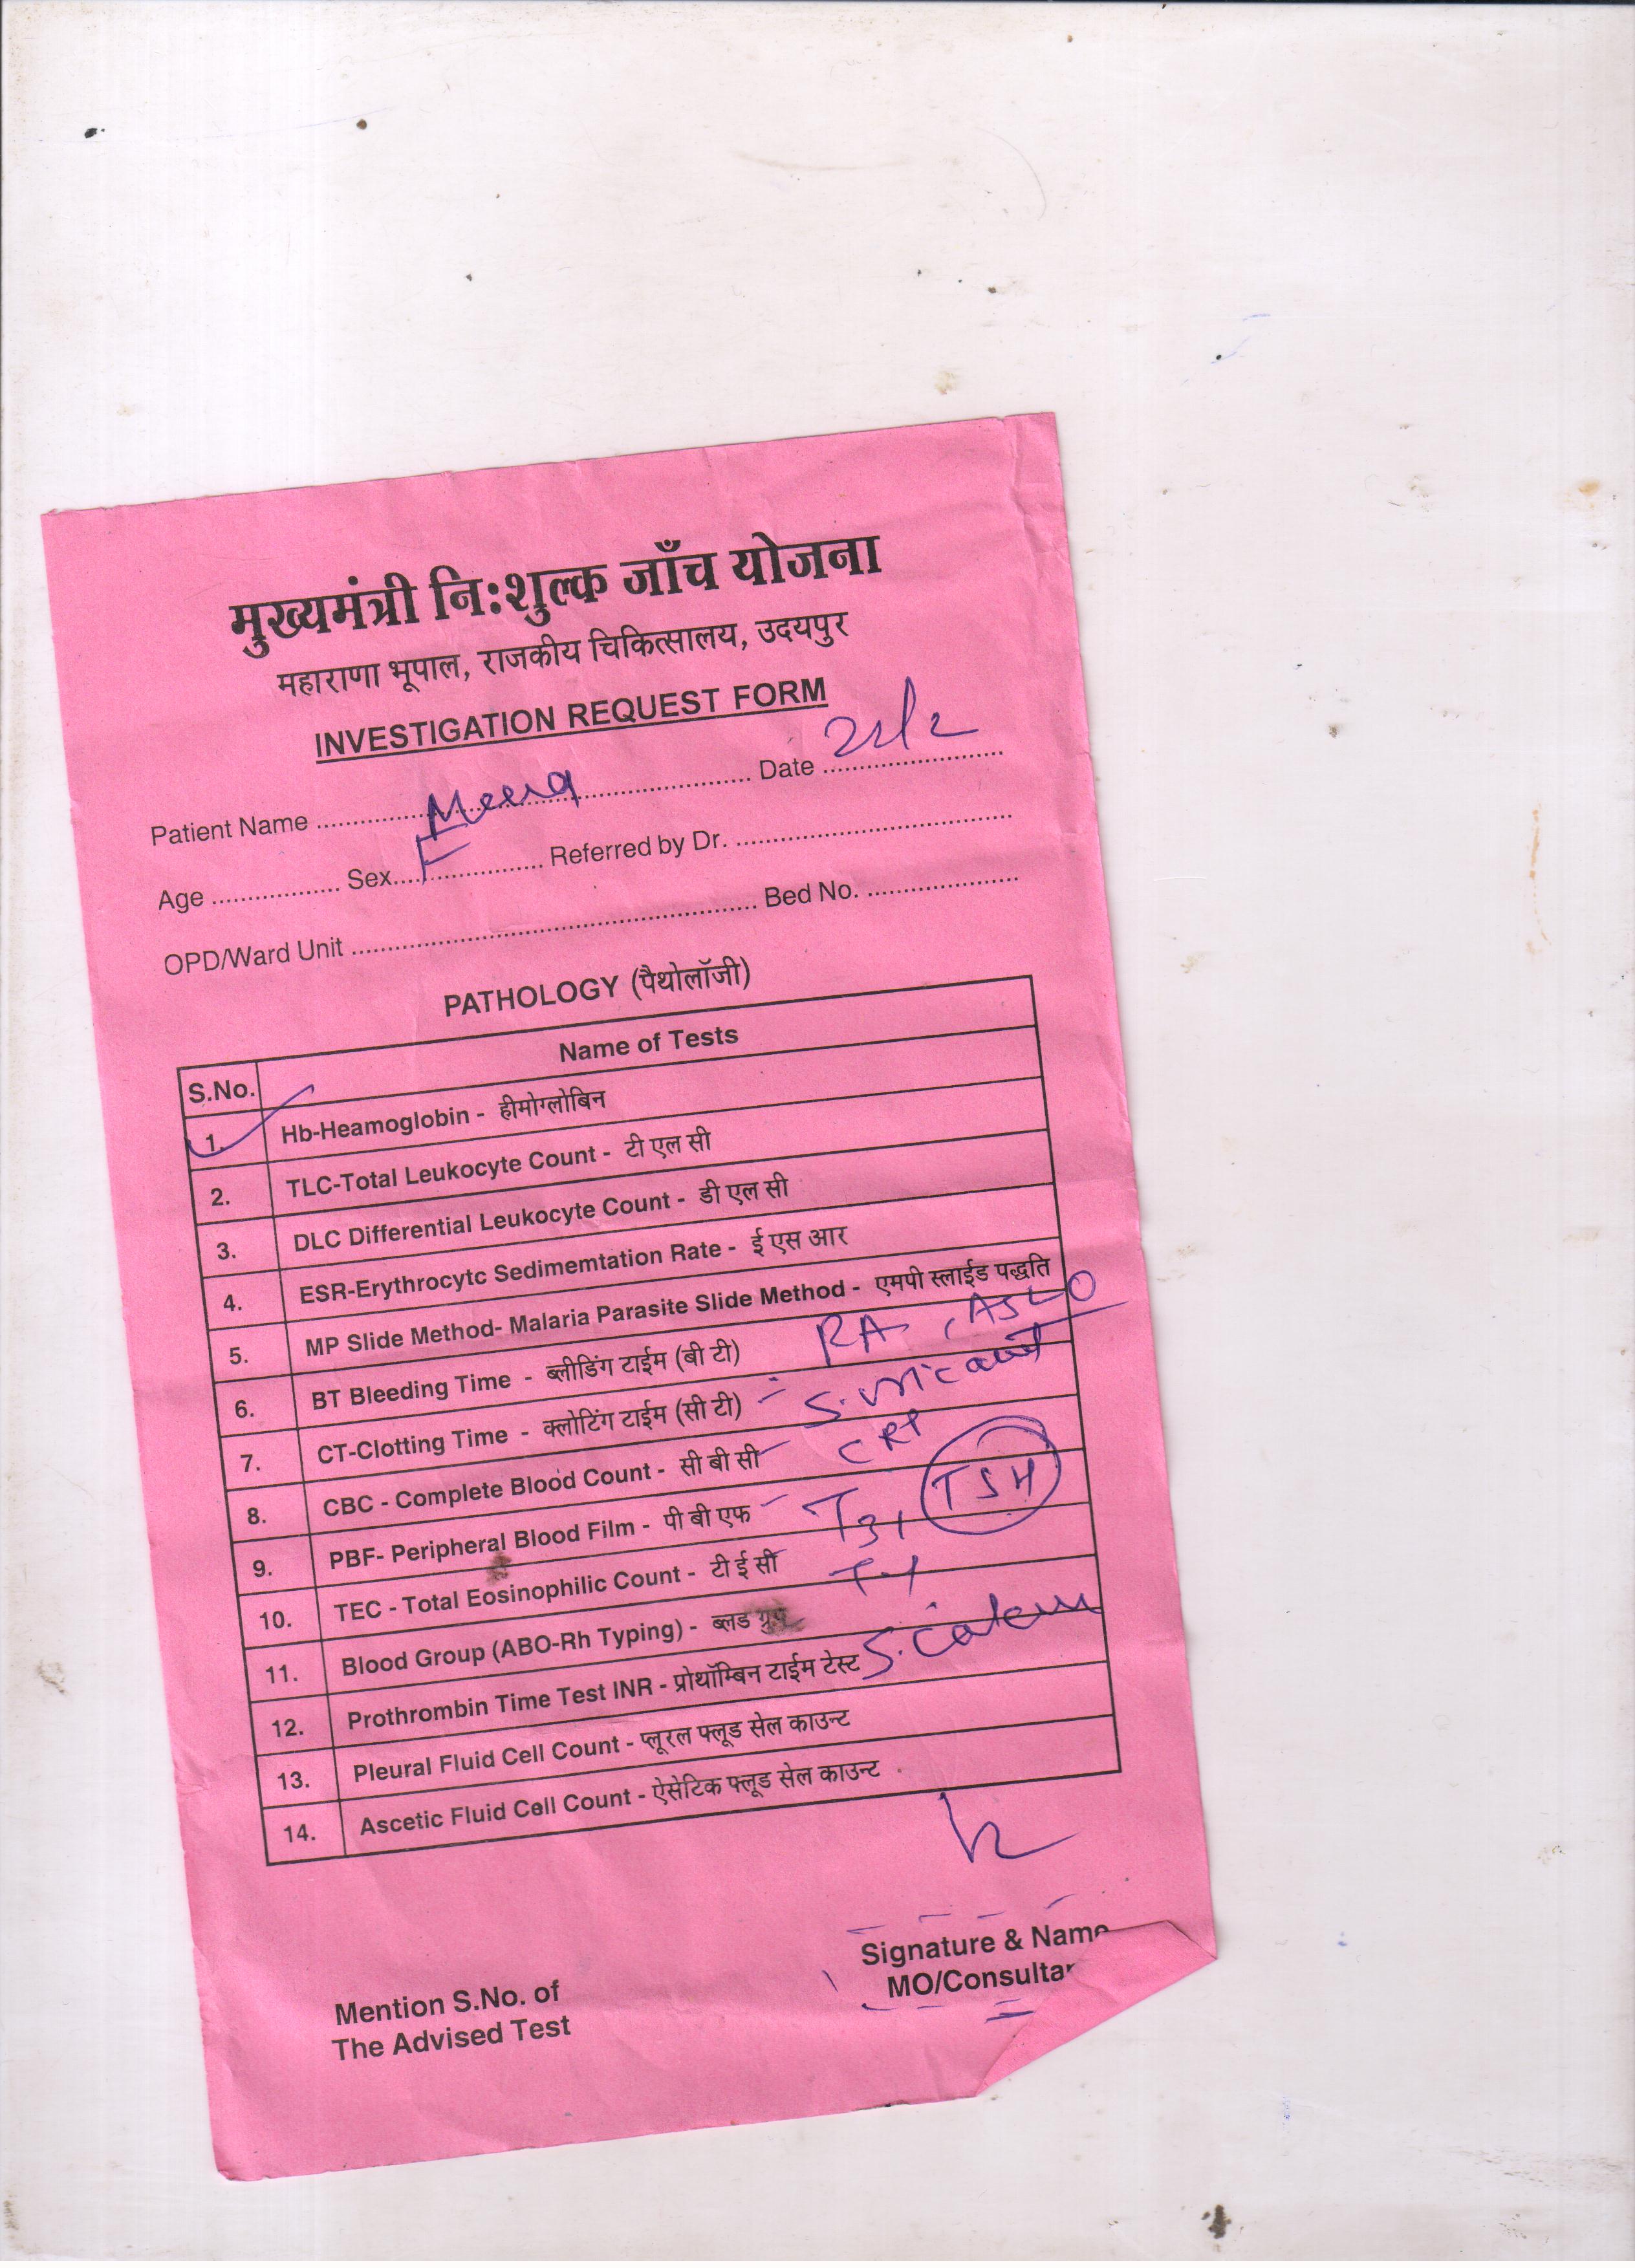 मुख्यमंत्री निःशुल्क जाँच योजना
महाराणा भूपाल, राजकीय चिकित्सालय, उदयपुर
INVESTIGATION REQUEST FORM
Patient Name ........ Meena ........ Date ........
Age ........ Sex ........ F ........ Referred by Dr. ........
OPD/Ward Unit ........ Bed No. ........
PATHOLOGY (पैथोलॉजी)
S.No. Name of Tests
1. Hb-Heamoglobin - हीमोग्लोबिन
2. TLC-Total Leukocyte Count - टी एल सी
3. DLC Differential Leukocyte Count - डी एल सी
4. ESR-Erythrocytc Sedimemtation Rate - ई एस आर
5. MP Slide Method- Malaria Parasite Slide Method - एमपी स्लाईड पद्धति
6. BT Bleeding Time - ब्लीडिंग टाईम (बी टी) RA, ASLO
7. CT-Clotting Time - क्लोटिंग टाईम (सी टी) S. Uric acid
8. CBC - Complete Blood Count - सी बी सी CRP
9. PBF- Peripheral Blood Film - पी बी एफ T3, TSH
10. TEC - Total Eosinophilic Count - टी ई सी
11. Blood Group (ABO-Rh Typing) - ब्लड ग्रुप
12. Prothrombin Time Test INR - प्रोथॉम्बिन टाईम टेस्ट
13. Pleural Fluid Cell Count - प्लूरल फ्लूड सेल काउन्ट
14. Ascetic Fluid Cell Count - ऐसेटिक फ्लूड सेल काउन्ट
Signature & Name
MO/Consultan
Mention S.No. of
The Advised Test